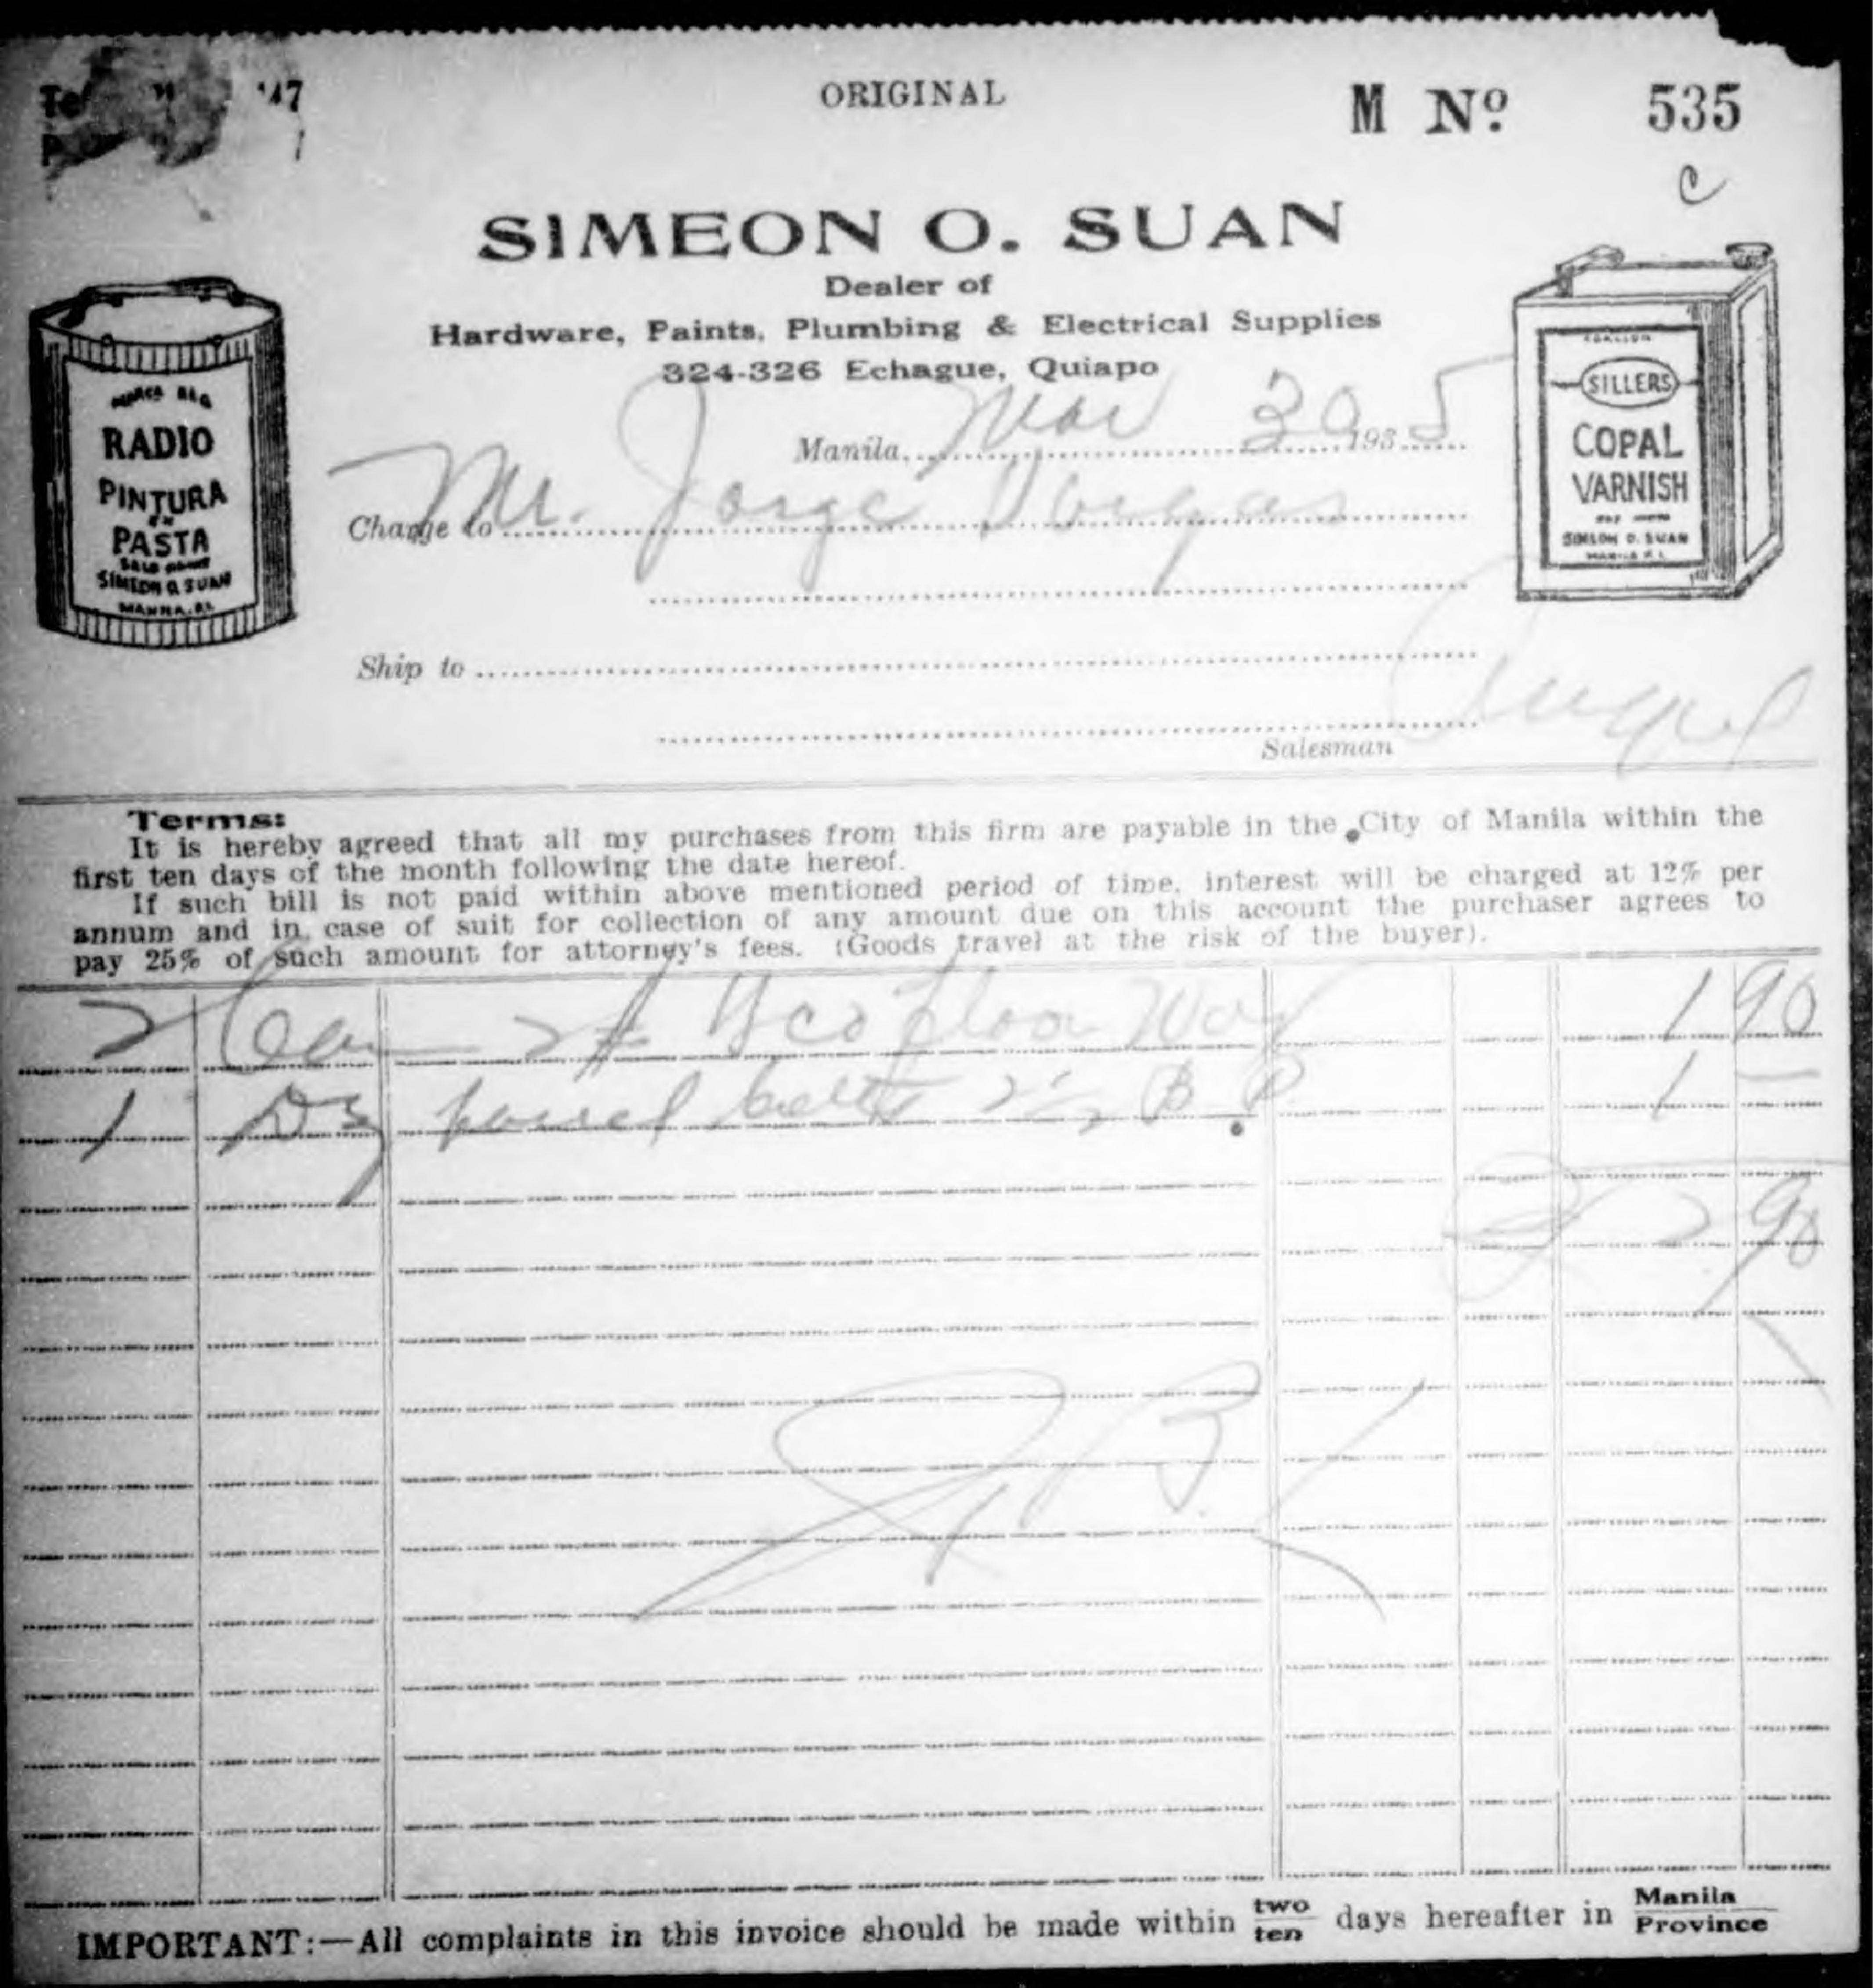 ORIGINAL
M Nº 535
C
SIMEON O. SUAN
Dealer of
Hardware, Paints, Plumbing & Electrical Supplies
324-326 Echague, Quiapo
Manila, Mar 30 1935
Charge to Mr. Jorge Vargas
Ship to
Salesman
RADIO
PINTURA
EN
PASTA
SIMEON O. SUAN
MANILA, P.I.
SILLERS
COPAL
VARNISH
SIMEON O. SUAN
MANILA P.I.
Terms:
It is hereby agreed that all my purchases from this firm are payable in the City of Manila within the
first ten days of the month following the date hereof.
If such bill is not paid within above mentioned period of time, interest will be charged at 12% per
annum and in case of suit for collection of any amount due on this account the purchaser agrees to
pay 25% of such amount for attorney's fees. (Goods travel at the risk of the buyer).
2 Can 2# Floor Wax 1 90
1 Dz barrel bolts 2½ B. P. 1 —
2 90
IMPORTANT:—All complaints in this invoice should be made within two/ten days hereafter in Manila/Province